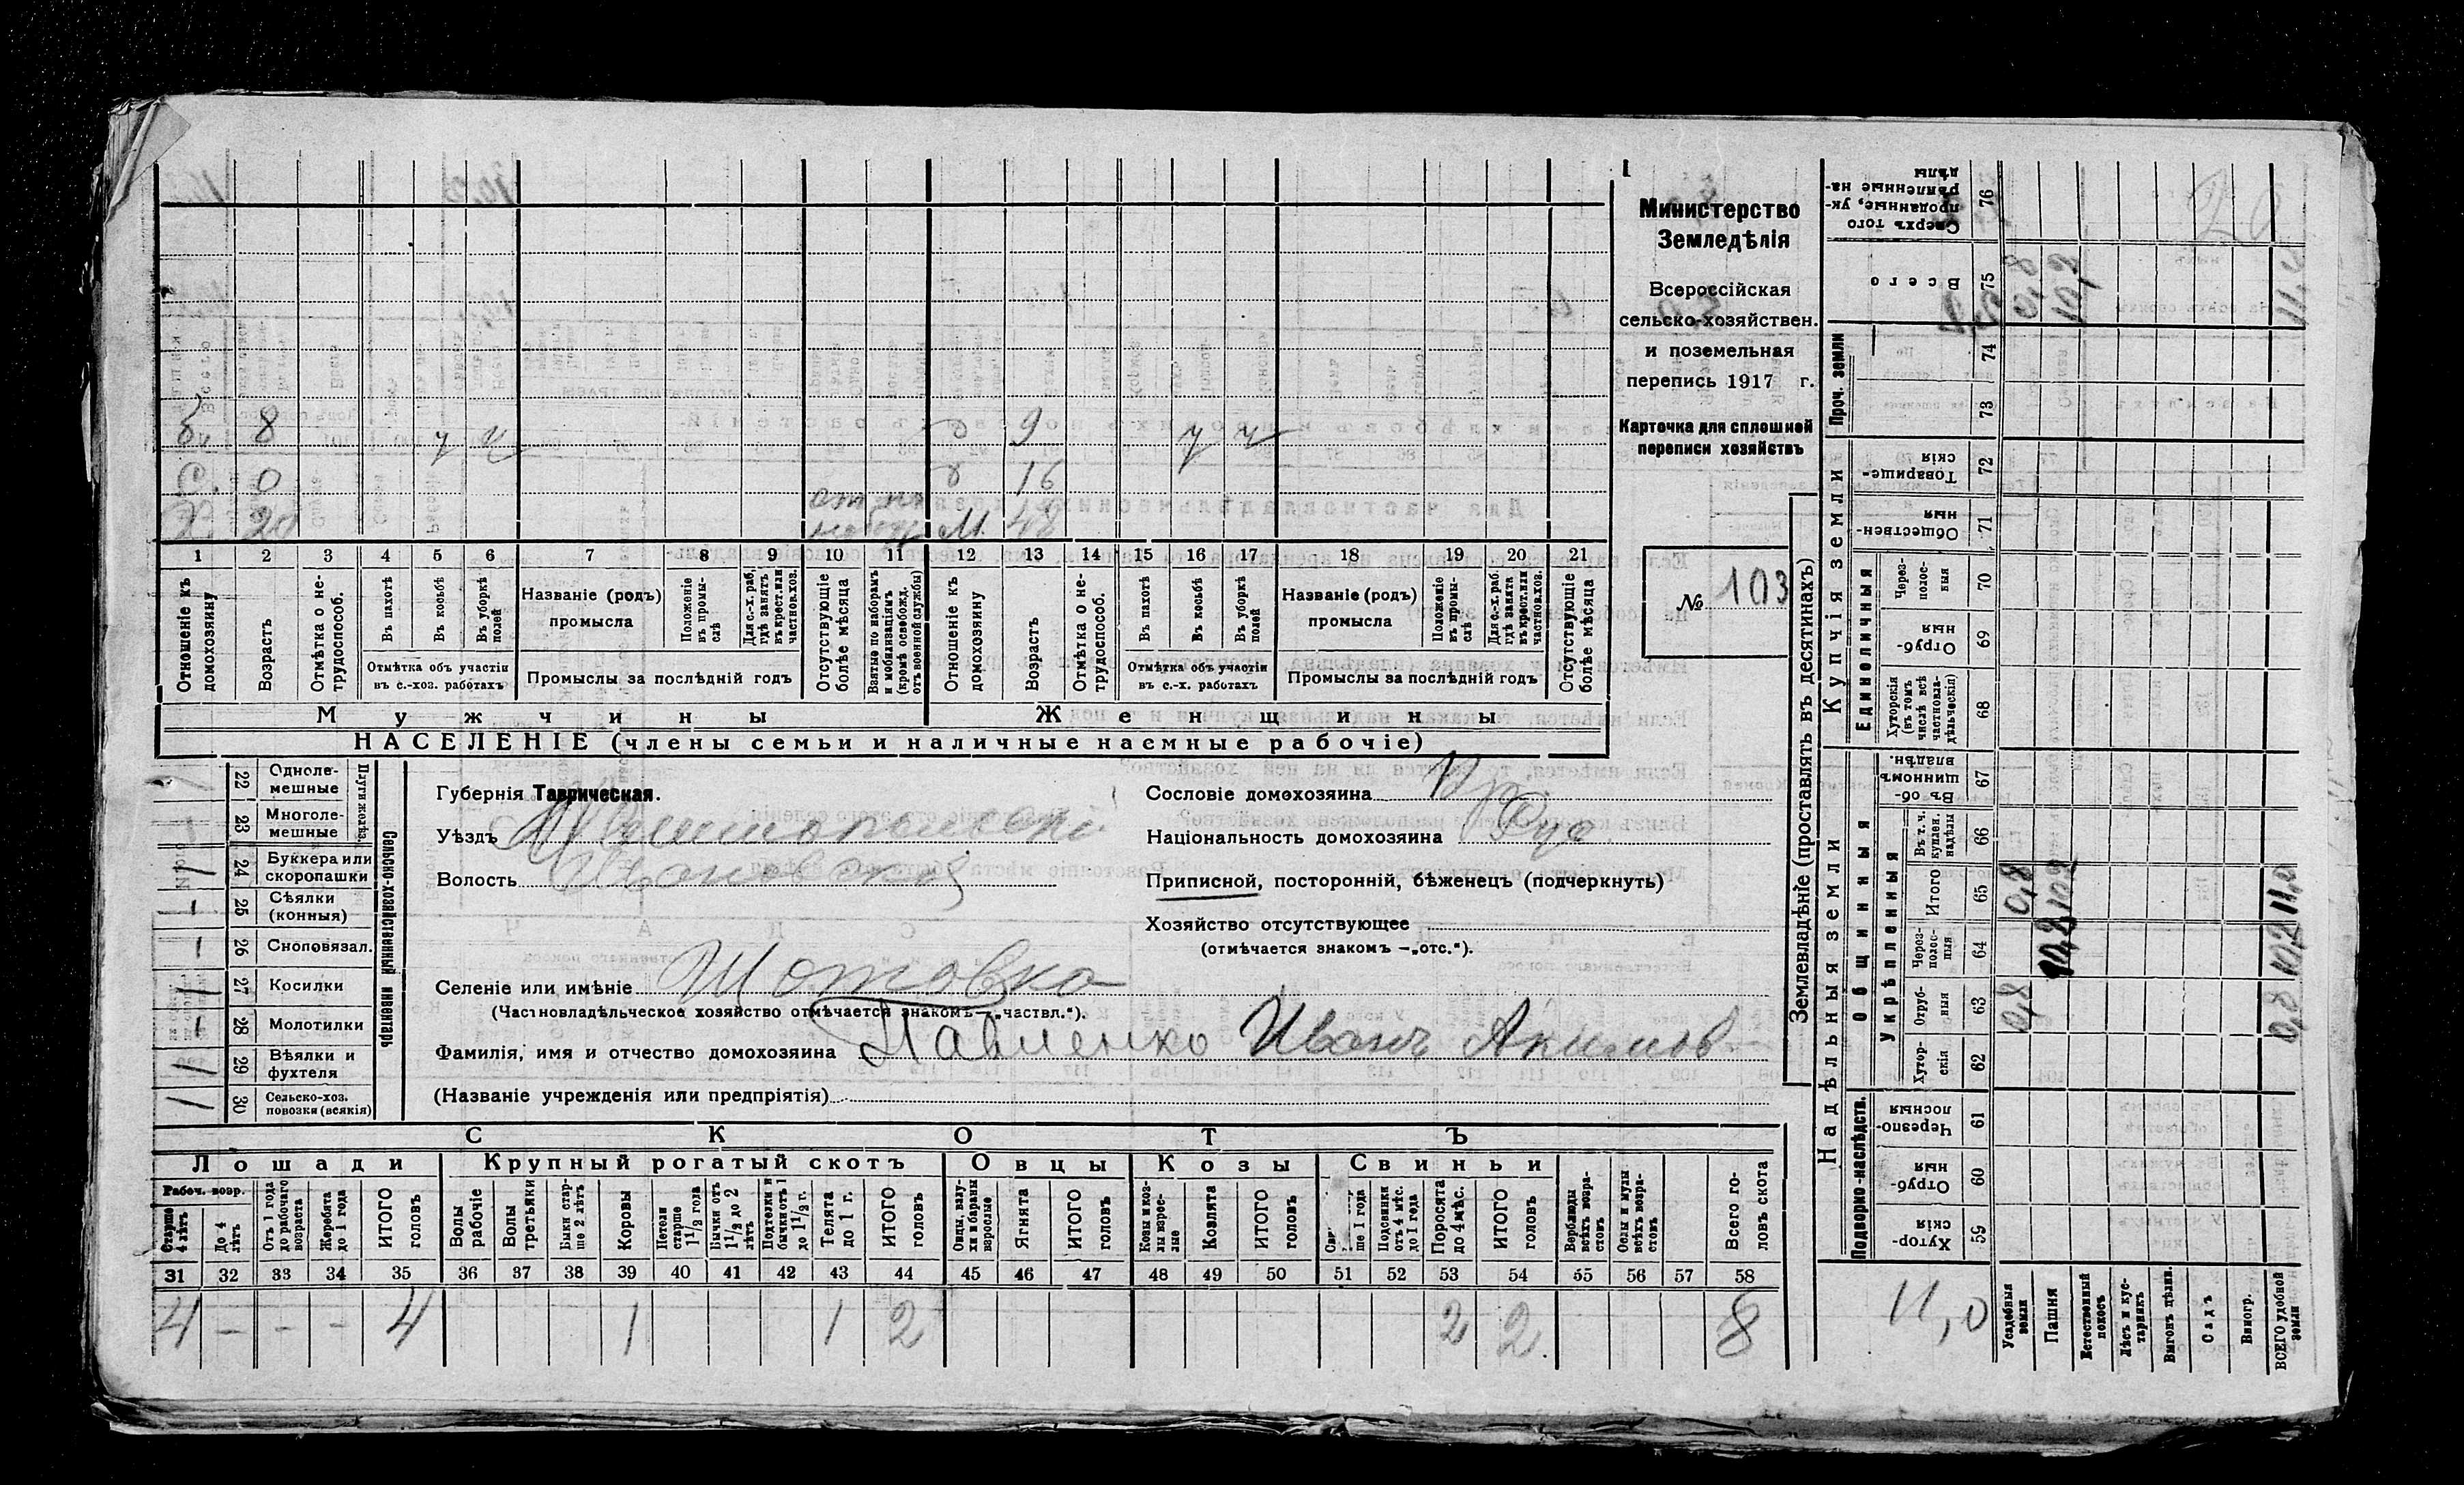 Министерство
Земледѣлія
Всероссійская
сельско-хозяйствен.
и поземельная
перепись 1917 г.
Карточка для сплошной
переписи хозяйствъ
№ 103
б. 8 у у д 9 у у
С. 0 д 16
Х. 28 М. 48
1 2 3 4 5 6 7 8 9 10 11 12 13 14 15 16 17 18 19 20 21
Отношеніе къ домохозяину
Возрастъ
Отмѣтка о не-трудоспособ.
Въ пахотѣ
Въ косьбѣ
Въ уборкѣ полей
Отмѣтка объ участіи въ с.-хоз. работахъ
Названіе (родъ) промысла
Положеніе въ промы-слѣ
Для с.-х. раб. гдѣ занятъ въ крест. или частнов. хоз.
Промыслы за послѣдній годъ
Отсутствующіе болѣе мѣсяца
Взятые по наборамъ и мобилизаціямъ (кромѣ освобожд. отъ военной службы)
Отношеніе къ домохозяину
Возрастъ
Отмѣтка о не-трудоспособ.
Въ пахотѣ
Въ косьбѣ
Въ уборкѣ полей
Отмѣтка объ участіи въ с.-х. работахъ
Названіе (родъ) промысла
Положеніе въ промы-слѣ
Для с.-х. раб. гдѣ занята въ крест. или частнов. хоз.
Промыслы за послѣдній годъ
Отсутствующіе болѣе мѣсяца
Мужчины Женщины
НАСЕЛЕНІЕ (члены семьи и наличные наемные рабочіе)
Сельско-хозяйственный инвентарь
22 Одноле-мешные
23 Многоле-мешные
24 Буккера или скоропашки
25 Сѣялки (конныя)
26 Сноповязал.
27 Косилки
28 Молотилки
29 Вѣялки и фухтеля
30 Сельско-хоз. повозки (всякія)
Губернія Таврическая.
Уѣздъ
Волость Ивановская
Сословіе домохозяина Кр
Національность домохозяина Рус
Приписной, посторонній, бѣженецъ (подчеркнуть)
Хозяйство отсутствующее
(отмѣчается знакомъ —„отс.“).
Селеніе или имѣніе Шотовка
(Частновладѣльческое хозяйство отмѣчается знакомъ—„частвл.“).
Фамилія, имя и отчество домохозяина Павленко Иванъ Акимов
(Названіе учрежденія или предпріятія)
СКОТЪ
Лошади Крупный рогатый скотъ Овцы Козы Свиньи
Рабоч. возр.
Старше 4 лѣтъ
До 4 лѣтъ
Отъ 1 года до рабочаго возраста
Жеребята до 1 года
ИТОГО головъ
Волы рабочіе
Волы третьяки
Быки стар-ше 2 лѣтъ
Коровы
Нетели старше 1 1/2 года
Бычки отъ 1 1/2 до 2 лѣтъ
Подтелки и бычки отъ 1 до 1 1/2 г.
Телята до 1 г.
ИТОГО головъ
Овцы, валу-хи и бараны взрослые
Ягнята
ИТОГО головъ
Козы и коз-лы взрос-лые
Козлята
ИТОГО головъ
ше 1 года
Подсвинки отъ 4 мѣс. до 1 года
Поросята до 4 мѣс.
ИТОГО головъ
Верблюды всѣхъ возра-стовъ
Ослы и мулы всѣхъ возра-стовъ
Всего го-ловъ скота
31 32 33 34 35 36 37 38 39 40 41 42 43 44 45 46 47 48 49 50 51 52 53 54 55 56 57 58
4 — — — 4 1 1 2 2 2. 8
Землевладѣніе (проставлять въ десятинахъ)
Надѣльныя земли
Купчія земли
Проч. земли
Подворно-наслѣдств.
Общинныя
Укрѣпленныя
Единоличныя
Сверхъ того проданные, ук-рѣпленные на-дѣлы 76
Всего 75 0,8 10,2 11,0
74
73
Товарище-скія 72
Обществен-ныя 71
Через-полос-ныя 70
Отруб-ныя 69
Хуторскія (въ томъ числѣ всѣ частновла-дѣльческія) 68
Въ об-щинномъ владѣн. 67
Въ т. ч. куплен. надѣлы 66
Итого 65 0,8 10,2 11,0
Через-полос-ныя 64 10,2 10,2
Отруб-ныя 63 0,8 0,8
Хутор-скія 62
Черезпо-лосныя 61
Отруб-ныя 60
Хутор-скія 59
11,0
Усадебныя земли
Пашня
Естественный покосъ
Лѣсъ и кус-тарникъ
Выгонъ цѣлин.
Садъ
Виногр.
ВСЕГО удобной земли